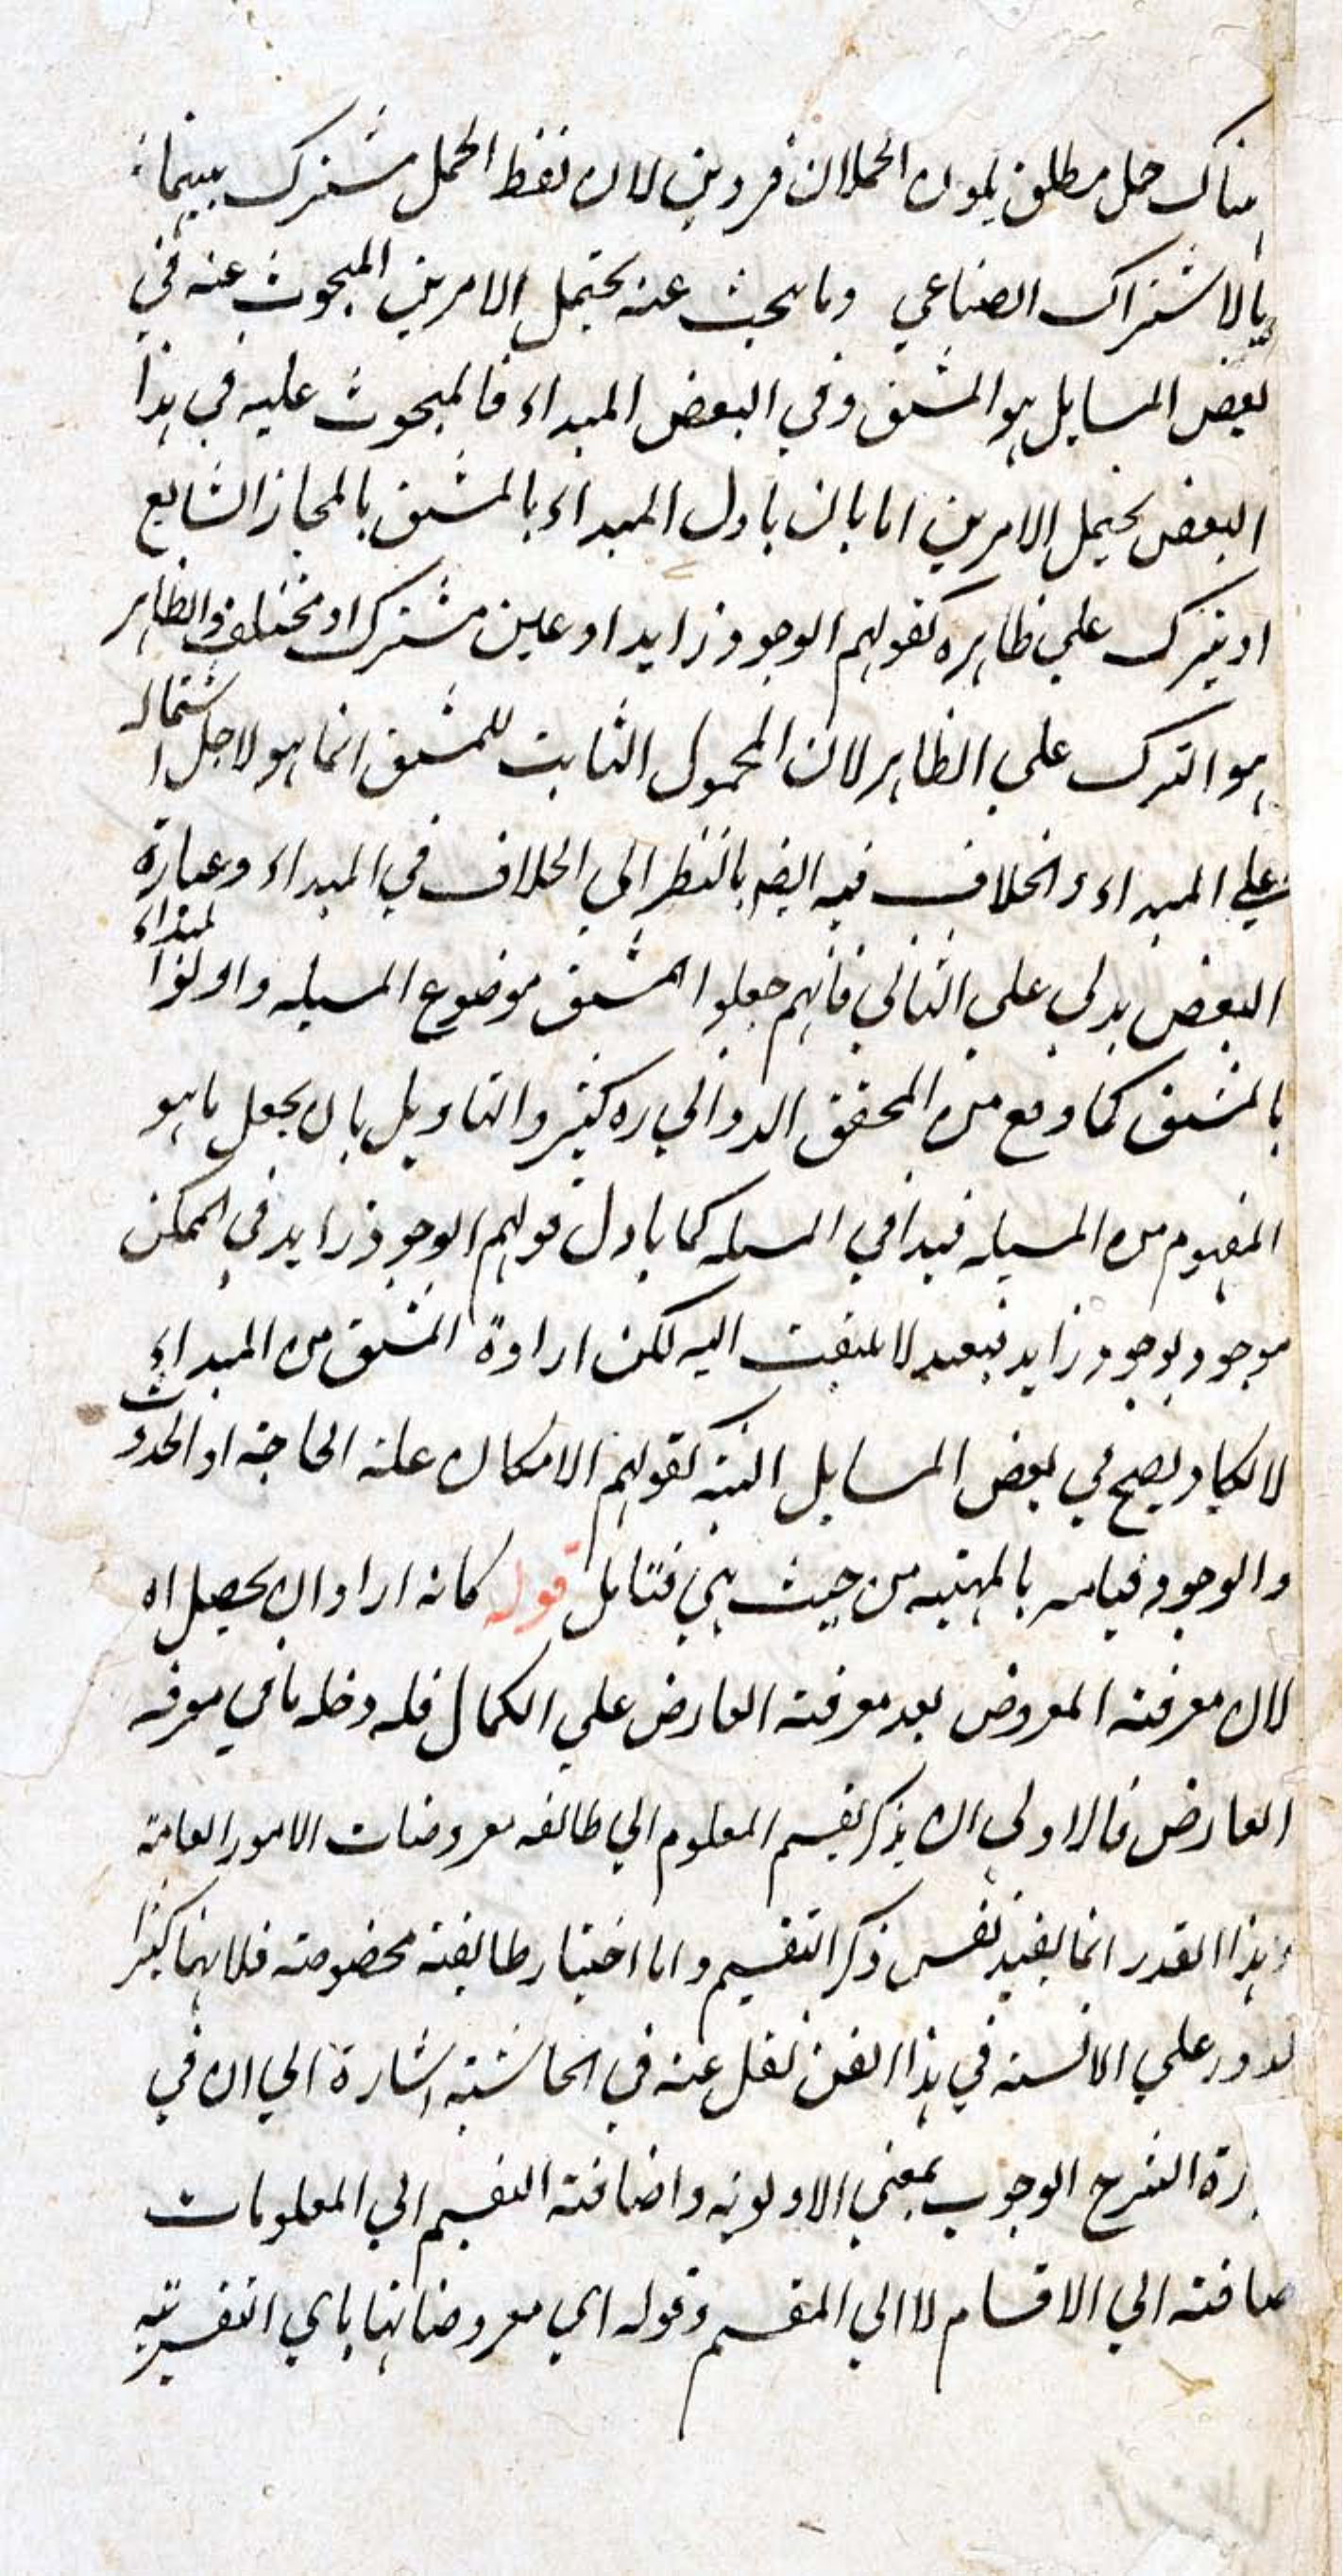 هناك حمل مطلق يكون الحملان فردين لان لفظ الحمل مشترك بينهما
بالاشتراك الصناعي وما يبحث عنه يحتمل الامرين المبحوث عنه في
بعض المسايل هو المشتق وفي البعض المبداء فالمبحوث عليه في هذا
البعض يحتمل الامرين اما بان ياول المبداء بالمشتق بالمجاز الشايع
او يترك علي ظاهره كقولهم الوجود زايد او عين مشترك او مختلف والظاهر
هو الترك علي الظاهر لان المحمول الثابت للمشتق انما هو لاجل اشتماله
علي المبداء والخلاف فيه ايضا بالنظر الي الخلاف في المبداء وعبارة
البعض يدل علي الثاني فانهم جعلوا المشتق موضوع المسيله واولوا المبداء
بالمشتق كما وقع من المحقق الدواني ره كثير والتاويل بان يجعل ما هو
المفهوم من المسيله قيدا في المسله كما ياول قولهم الوجود زايد في الممكن
موجود بوجود زايد فبعيد لا يلتفت اليه لكن ارادة المشتق من المبداء
لا يكاد يصح في بعض المسايل البتة كقولهم الامكان علة الحاجة او الحدوث
والوجود قياس بالمهية من حيث هي فتامل قوله كانه اراد ان يحصل اه
لان معرفة المعروض بعد معرفة العارض علي الكمال فله دخله ما في معرفة
العارض فالاولي ان يذكر تقسيم المعلوم الي طائفه معروضات الامور العامة
وهذا القدر انما يفيد نفس ذكر التقسيم واما اختيار طايفة مخصوصة فلانها كثيرا
تدور علي الالسنة في هذا الفن نقل عنه في الحاشية اشارة الي ان في
رة الشرح الوجوب بمعني الاولوية واضافة التقسيم الي المعلومات
ضافة الي الاقسام لا الي المقسم وقوله اي معروضاتها باي التفسيرية